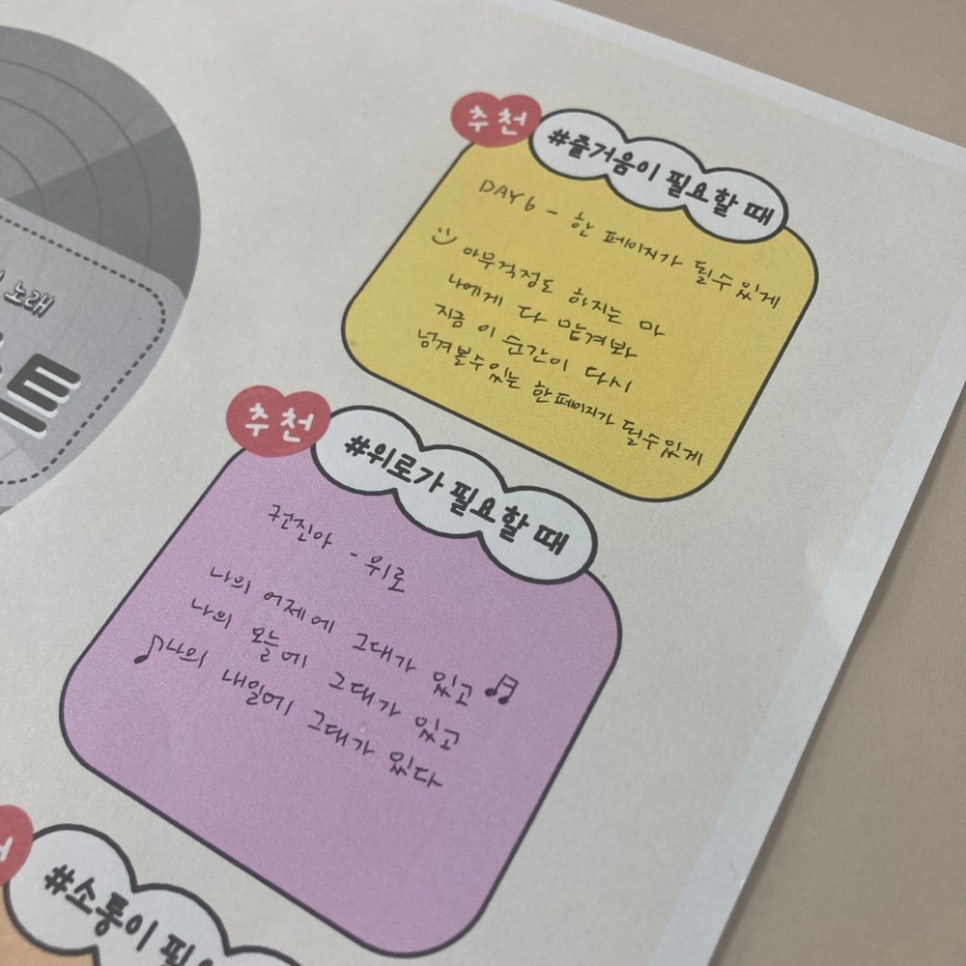 노래
트
추천
#즐거움이 필요할 때
DAY6 - 한 페이지가 될수있게
아무걱정도 하지는 마
나에게 다 맡겨봐
지금 이 순간이 다시
넘겨볼수있는 한페이지가 될수있게
추천
#위로가 필요할 때
권진아 - 위로
나의 어제에 그대가 있고
나의 오늘에 그대가 있고
나의 내일에 그대가 있다
#소통이